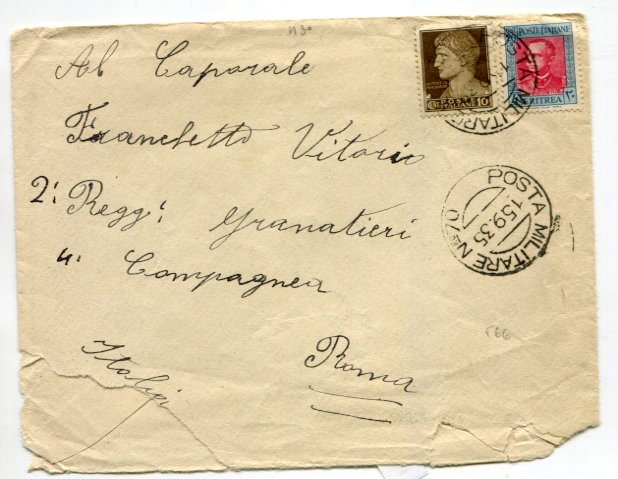 N 30
Al Caporale
Franchetto Vitorio
2: Regg: Granatieri
4. Compagnea
Italia
Roma
POSTE ITALIANE 10
POSTE ITALIANE
ERITREA
POSTA MILITARE
POSTA MILITARE Nº 70
15.9.35
r66